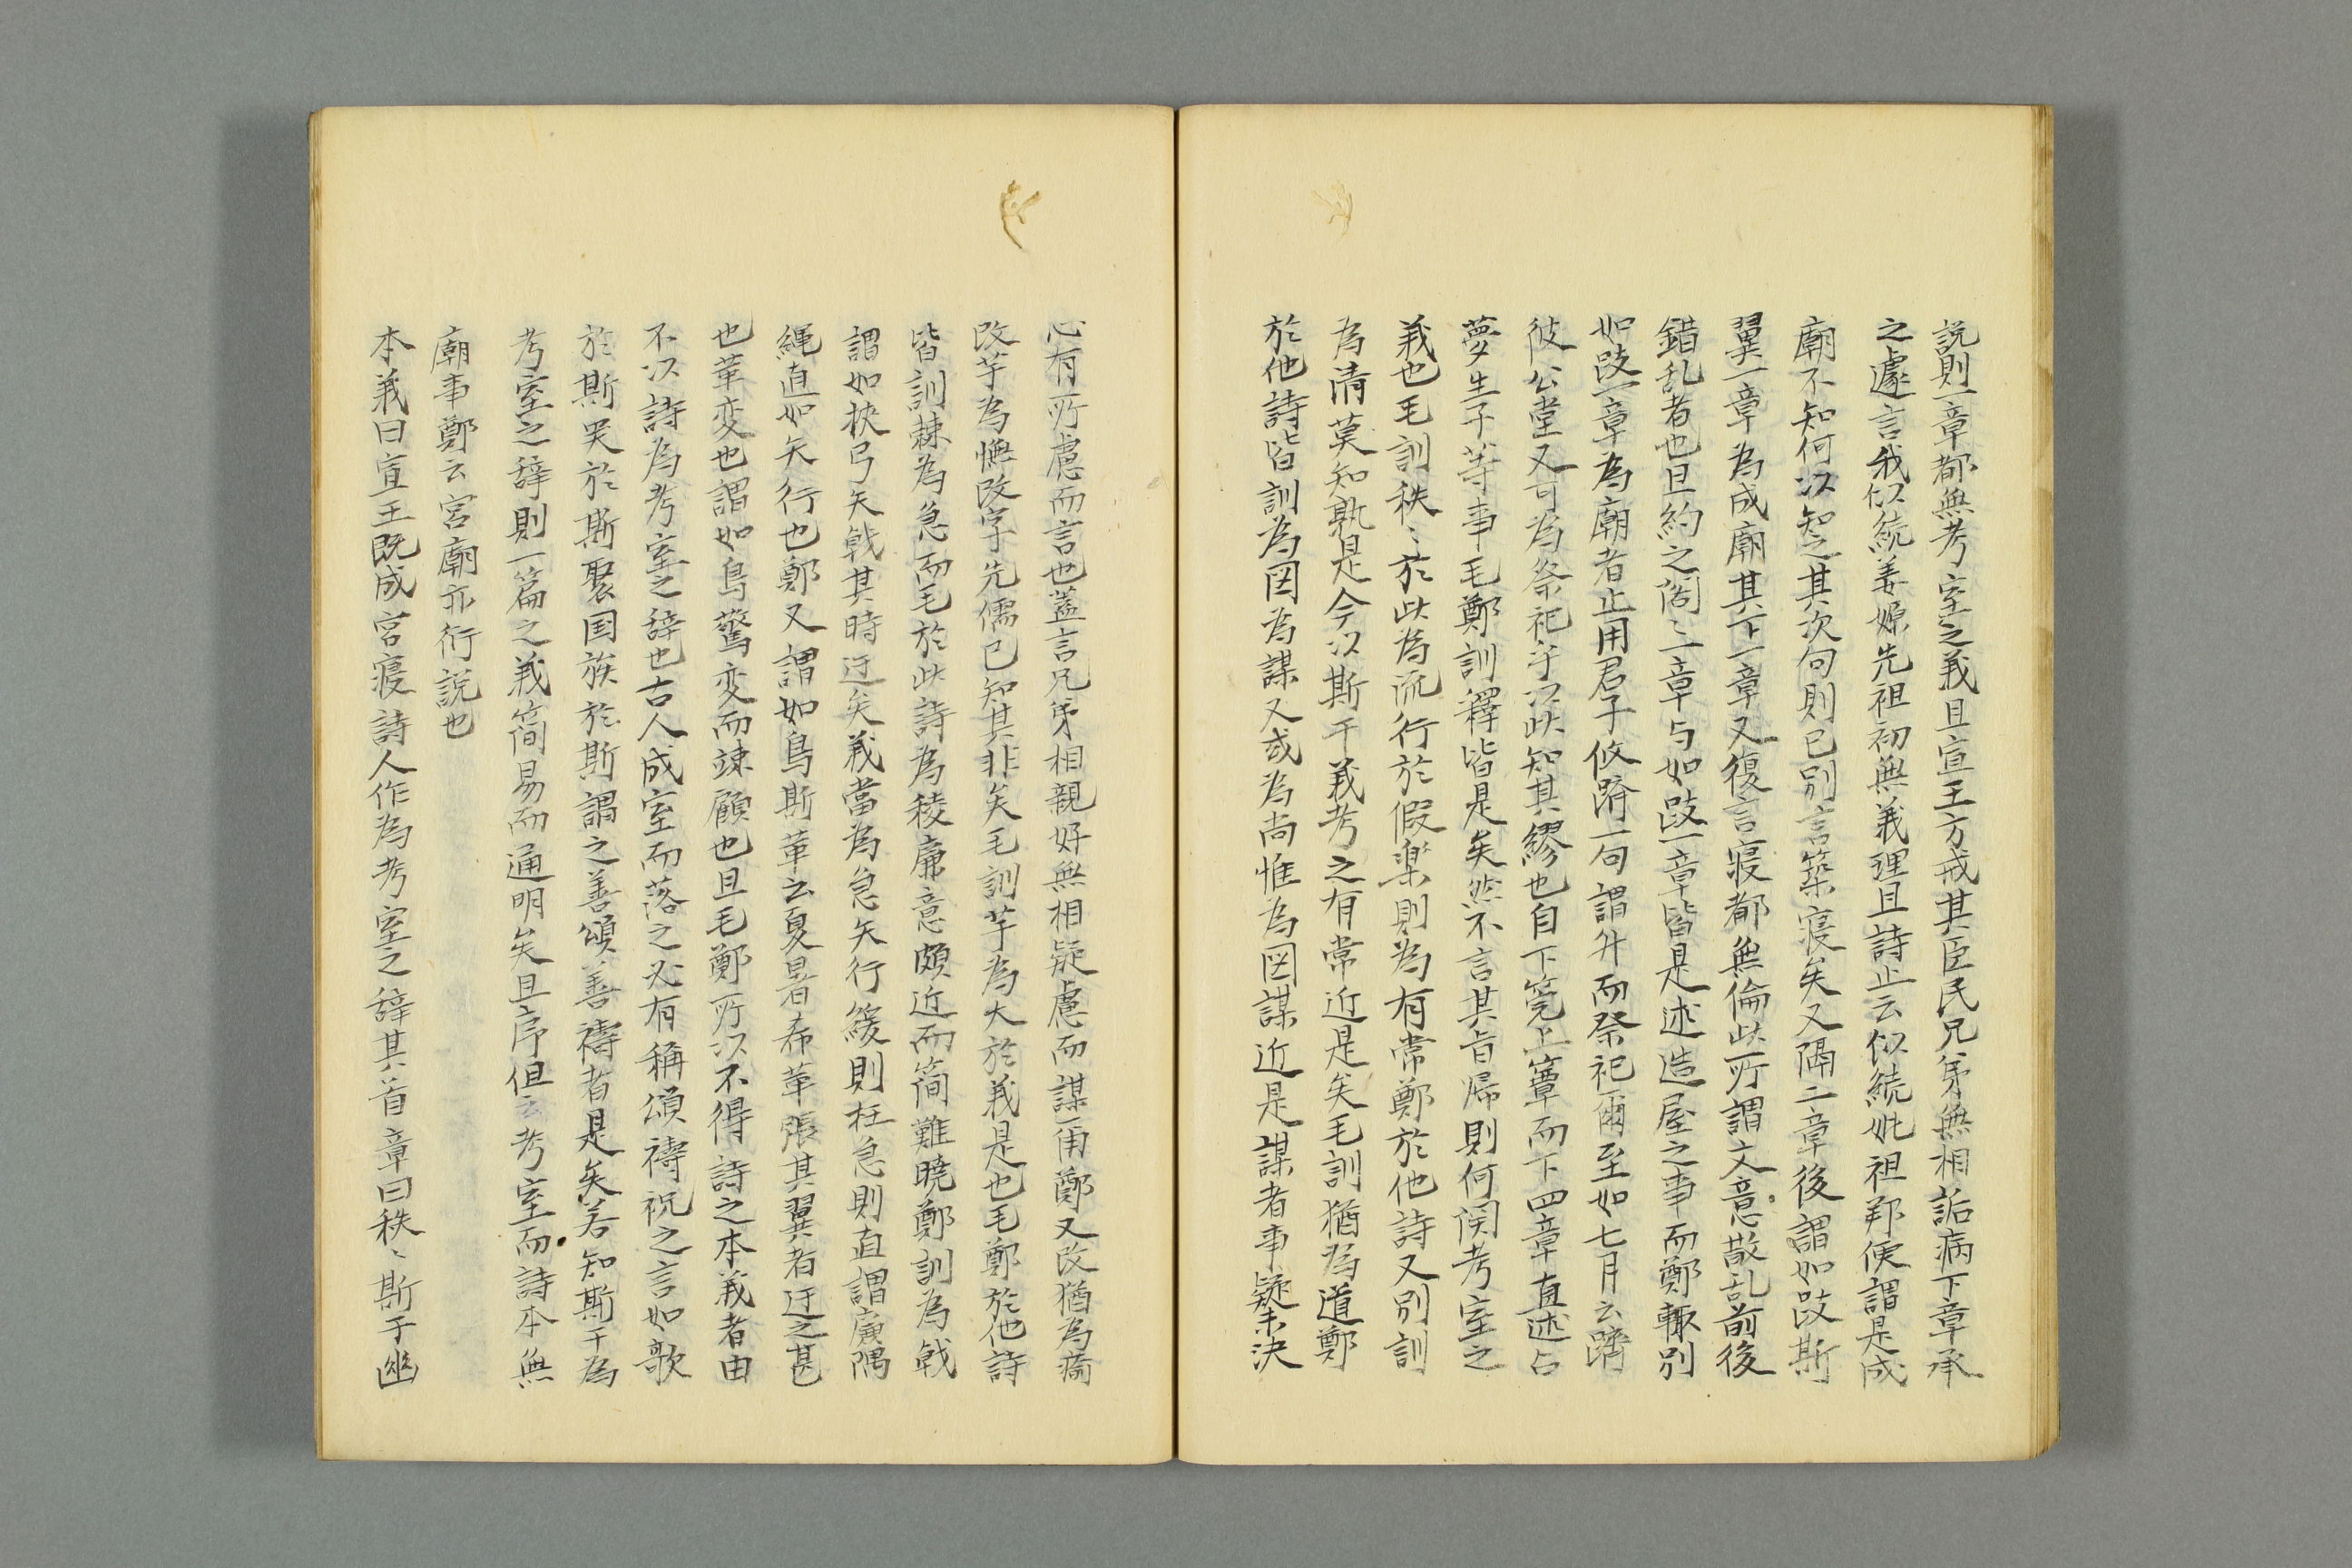 説則一章都無考室之義且宣王方戒其臣民兄弟無相詬病下章承
之遽言我似続姜嫄先祖初無義理且詩止云似続妣祖鄭便謂是成
廟不知何以知之其次句則已別言築寝矣又隔二章後謂如跂斯
翼一章為成廟其下一章又復言寝都無倫此所謂文意散乱前後
錯乱者也且約之閣〻一章与如跂一章皆是述造屋之事而鄭輙別
如跂一章為廟者止用君子攸躋一句謂升而祭祀爾至如七月云躋
彼公堂又可為祭祀乎以此知其繆也自下莞上簟而下四章直述占
夢生子等事毛鄭訓釋皆是矣然不言其旨帰則何関考室之
義也毛訓秩〻於此為流行於假楽則為有常鄭於他詩又別訓
為清莫知孰是今以斯干義考之有常近是矣毛訓猶為道鄭
於他詩皆訓為図為謀又或為尚惟為図謀近是謀者事疑未決
心有所慮而言也蓋言兄弟相親好無相疑慮而謀一用鄭又改猶為瘉
改芋為幠改字先儒已知其非矣毛訓芋為大於義是也毛鄭於他詩
皆訓棘為急而毛於此詩為稜廉意頗近而简難暁鄭訓為戟
謂如挟弓矢戟其時迂矣義當為急矢行緩則枉急則直謂廉隅
縄直如矢行也鄭又謂如鳥斯革云夏暑希革張其翼者迂之甚
也革変也謂如鳥驚変而竦顧也且毛鄭所以不得詩之本義者由
不以詩為考室之辞也古人成室而落之必有稱頌禱祝之言如歌
於斯哭於斯聚国族於斯謂之善頌善禱者是矣若知斯干為
考室之辞則一篇之義简易而通明矣且序但云考室而詩本無
廟事鄭云宮廟亦衍説也
本義曰宣王既成宮寝詩人作為考室之辞其首章曰秩〻斯干幽